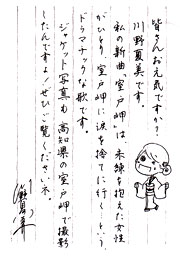 皆さんお元気ですか？
川野夏美です。
私の新曲「室戸岬」は未練を抱えた女性
がひとり室戸岬に涙を捨てに行く…という
ドラマチックな歌です。
ジャケット写真も高知県の室戸岬で撮影
したんですよ♪ぜひご覧くださいネ。